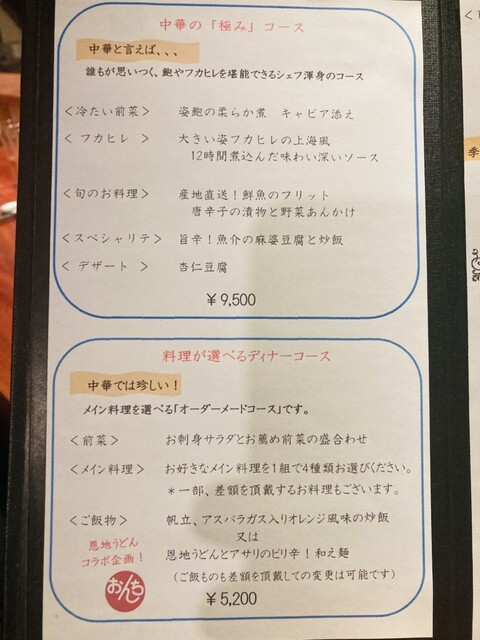 中華の「極み」コース
中華と言えば、、、
誰もが思いつく、鮑やフカヒレを堪能できるシェフ渾身のコース
＜冷たい前菜＞　姿鮑の柔らか煮　キャビア添え
＜フカヒレ＞　大きい姿フカヒレの上海風
12時間煮込んだ味わい深いソース
＜旬のお料理＞　産地直送！鮮魚のフリット
唐辛子の漬物と野菜あんかけ
＜スペシャリテ＞　旨辛！魚介の麻婆豆腐と炒飯
＜デザート＞　杏仁豆腐
￥9,500
料理が選べるディナーコース
中華では珍しい！
メイン料理を選べる「オーダーメードコース」です。
＜前菜＞　お刺身サラダとお薦め前菜の盛合わせ
＜メイン料理＞　お好きなメイン料理を1組で4種類お選びください。
＊一部、差額を頂戴するお料理もございます。
＜ご飯物＞　帆立、アスパラガス入りオレンジ風味の炒飯
又は
恩地うどんとアサリのピリ辛！和え麺
（ご飯ものも差額を頂戴しての変更は可能です）
恩地うどん
コラボ企画！
おんち
￥5,200
季